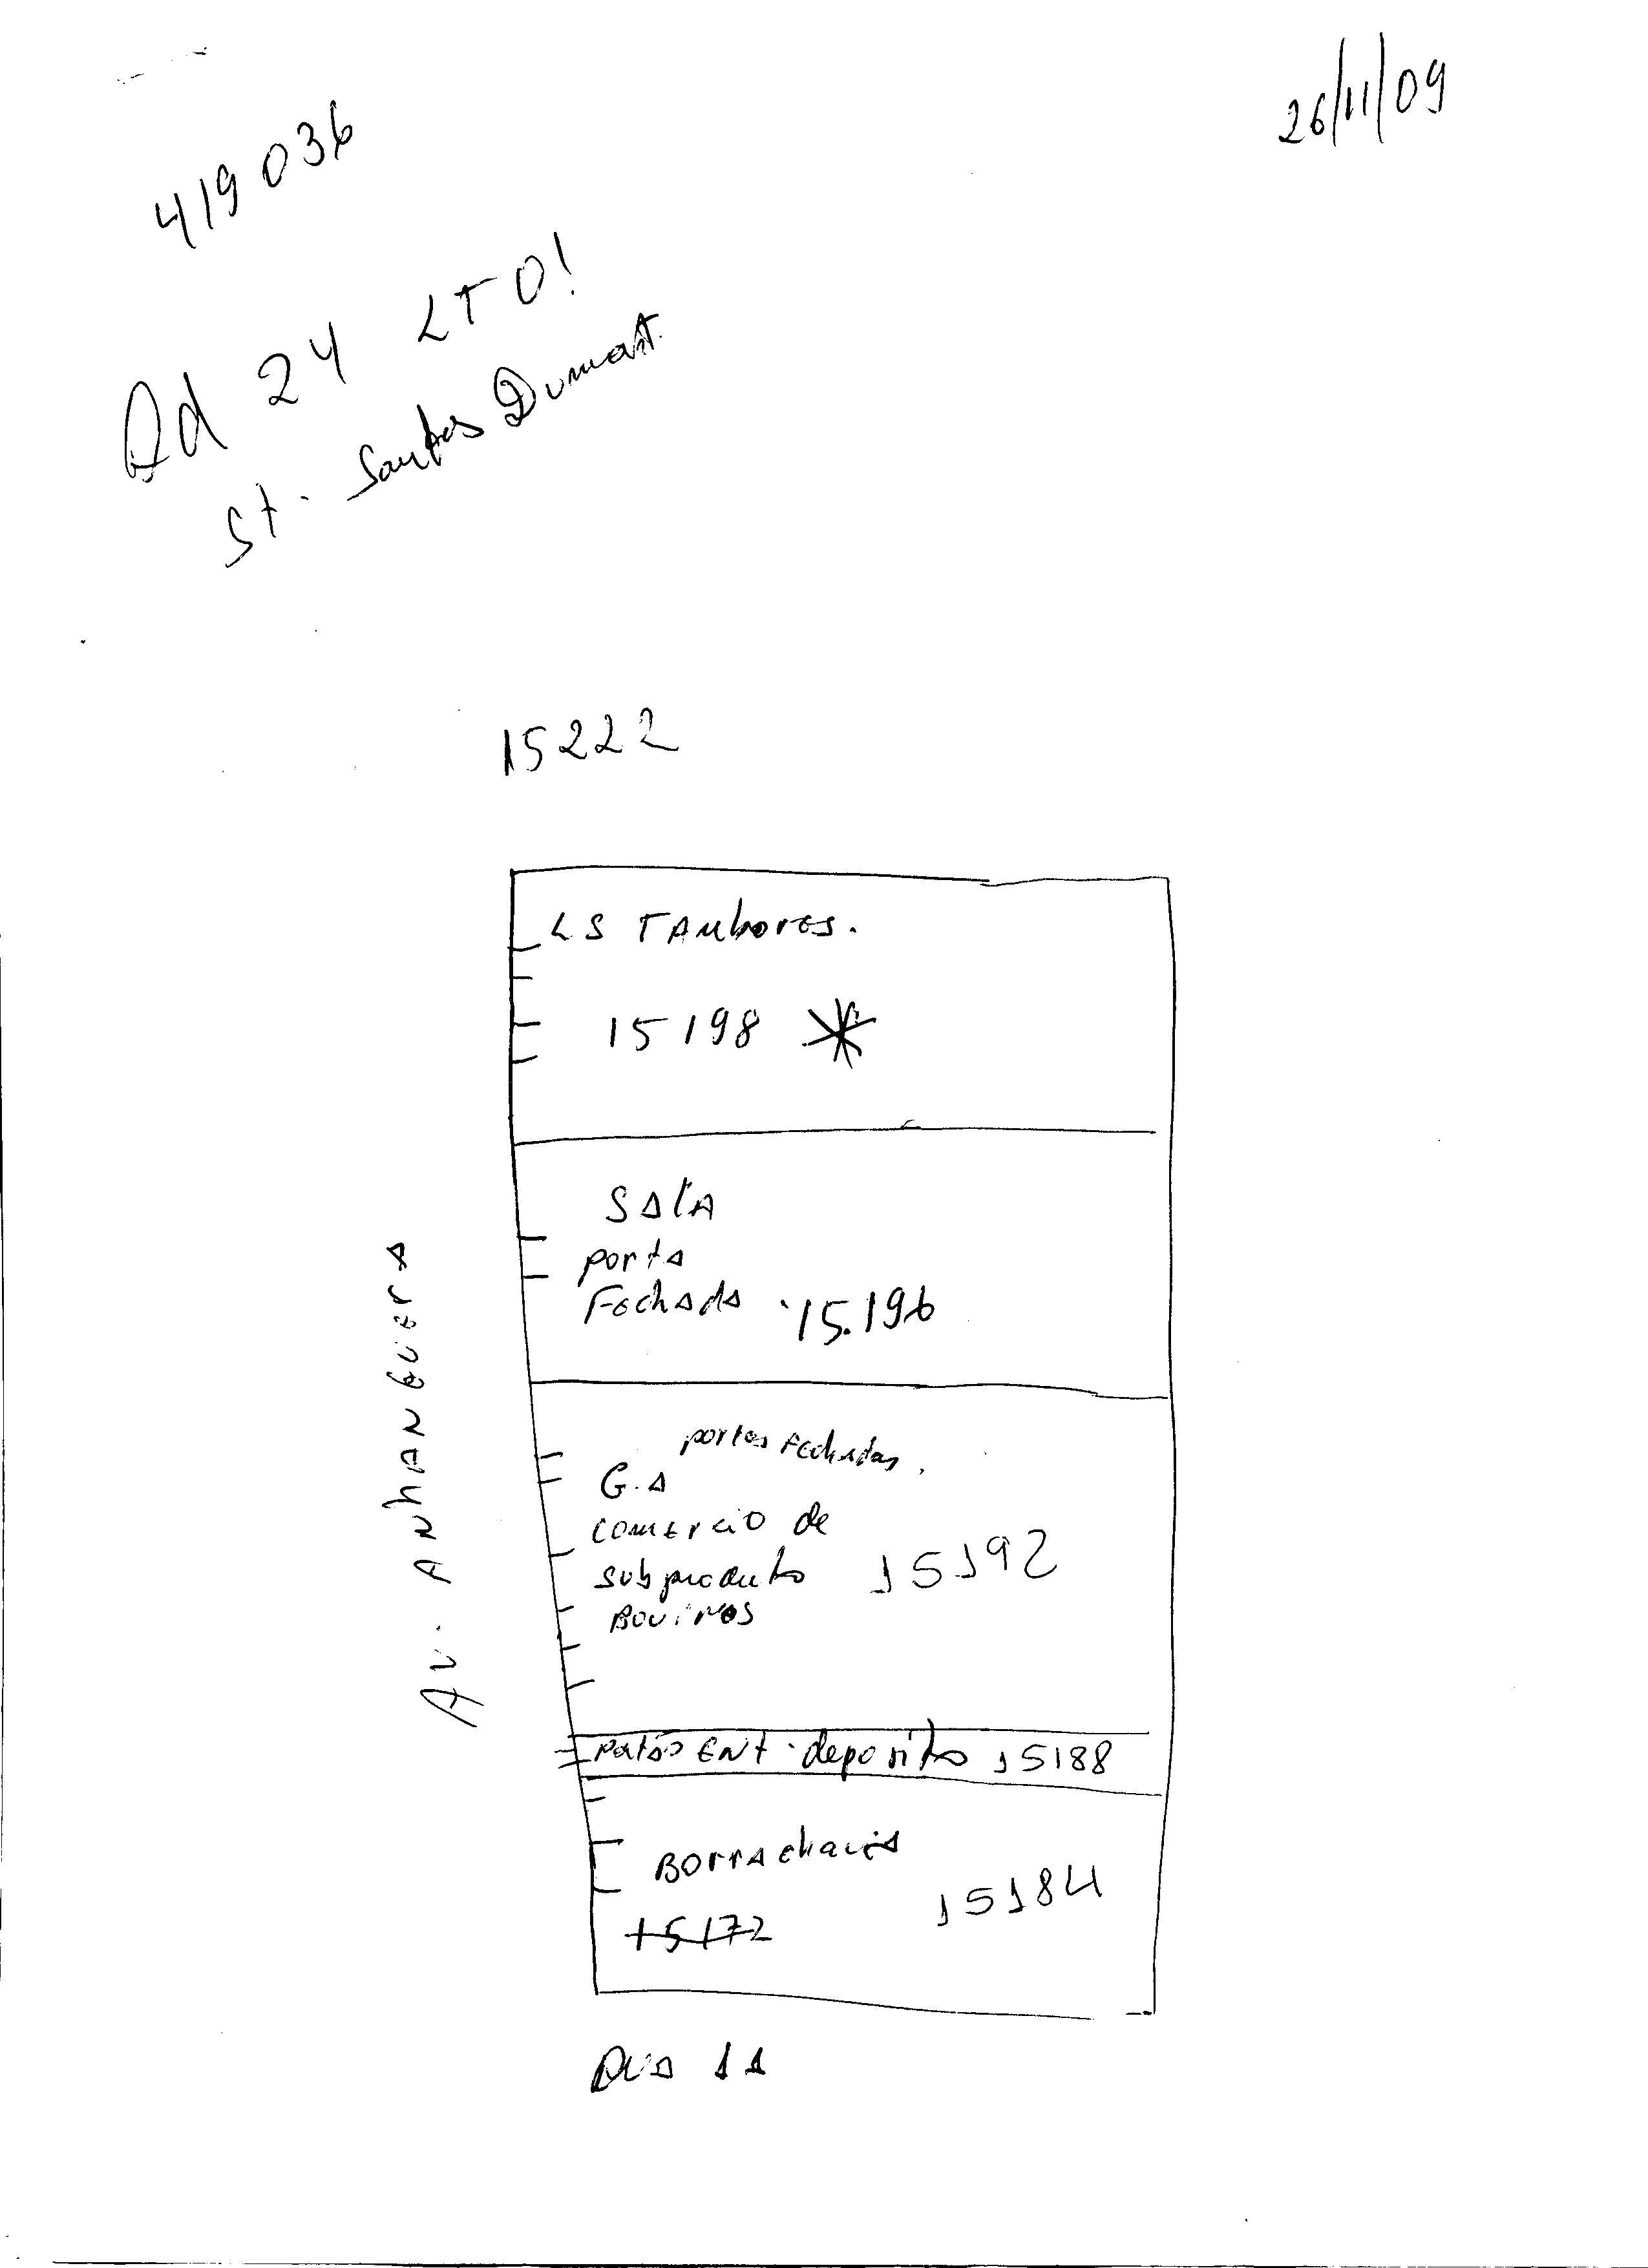 26/11/09
419036
Qd 24 LT 01
St. Santos Dumont.
15222
LS TAmbores.
15198 *
SAlA
portA
FechAdA 15.196
portas Fechadas.
G.A
comercio de
subproduto 15192
Bovinos
portão ENT. deposito 15188
BorrAchariA
15184
15172
Av. ANhANGUerA
RUA 11